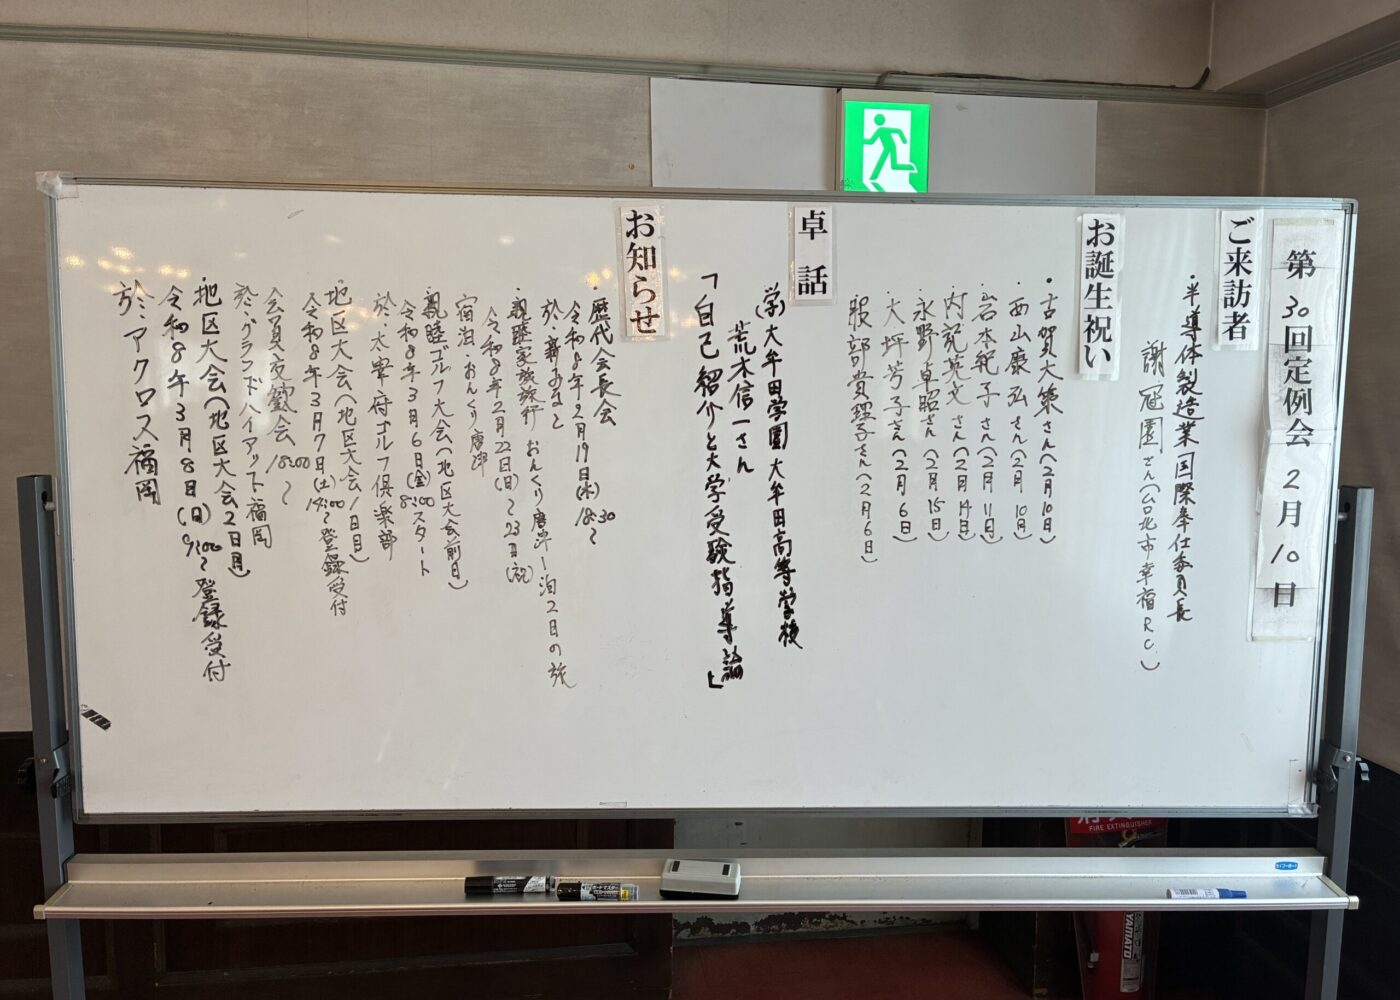 第30回定例会 2月10日
ご来訪者
・半導体製造業国際奉仕委員長
謝冠園さん(台北市幸福RC.)
お誕生祝い
・古賀大策さん(2月10日)
・西山康弘さん(2月10日)
・岩本範子さん(2月11日)
・内記英文さん(2月14日)
・永野卓昭さん(2月15日)
・大坪芳子さん(2月6日)
・服部貴理子さん(2月6日)
卓話
(学)大牟田学園大牟田高等学校
荒木信一さん
「自己紹介と大学受験指導論」
お知らせ
・歴代会長会
令和8年2月19日(木)18:30〜
於:新
・親睦家族旅行 おんくり唐津一泊2日の旅
令和8年2月22日(日)〜23日(祝)
宿泊:おんくり唐津
・親睦ゴルフ大会(地区大会前日)
令和8年3月6日(金)8:00スタート
於:太宰府ゴルフ倶楽部
・地区大会(地区大会1日目)
令和8年3月7日(土)14:00〜登録受付
会員友歓会 18:00〜
於:グランドハイアット福岡
・地区大会(地区大会2日目)
令和8年3月8日(日)9:00〜登録受付
於:アクロス福岡
FIRE EXTINGUISHER
YAMATO